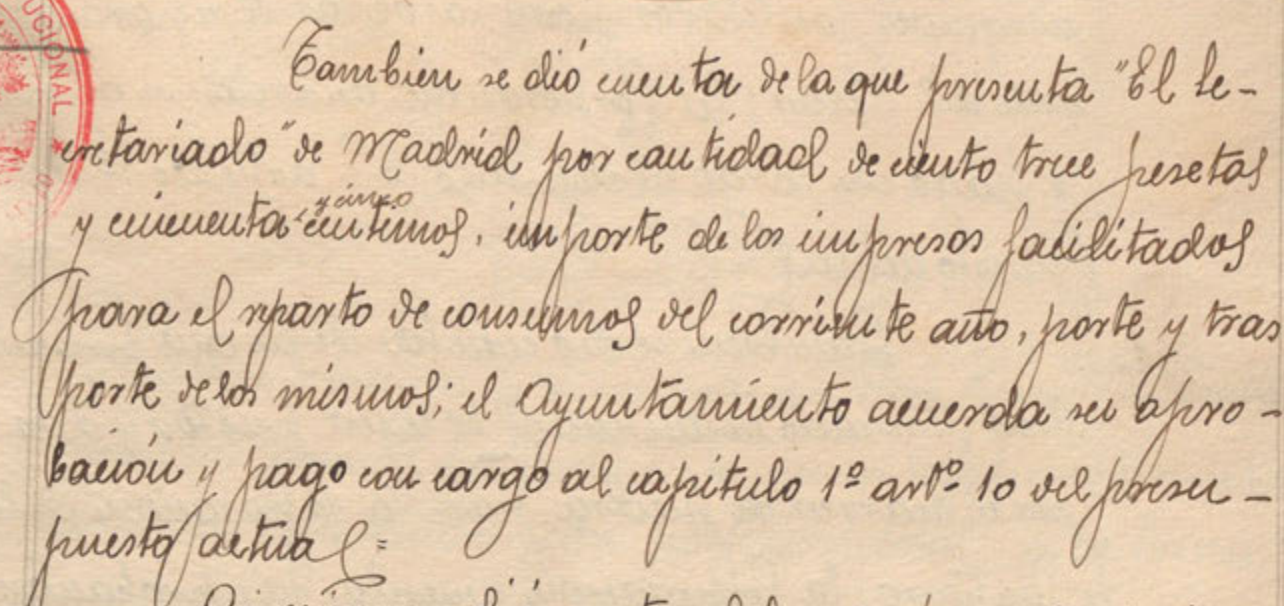 UCIONAL
Tambien se dió cuenta de la que presenta "El Se-
cretariado" de Madrid por cantidad de ciento trece pesetas
y cincuenta y cinco centimos, importe de los impresos facilitados
para el reparto de consumos del corriente año, porte y tras
porte de los mismos; el Ayuntamiento acuerda su apro-
bación y pago con cargo al capitulo 1º artº 10 del presu-
puesto actual=